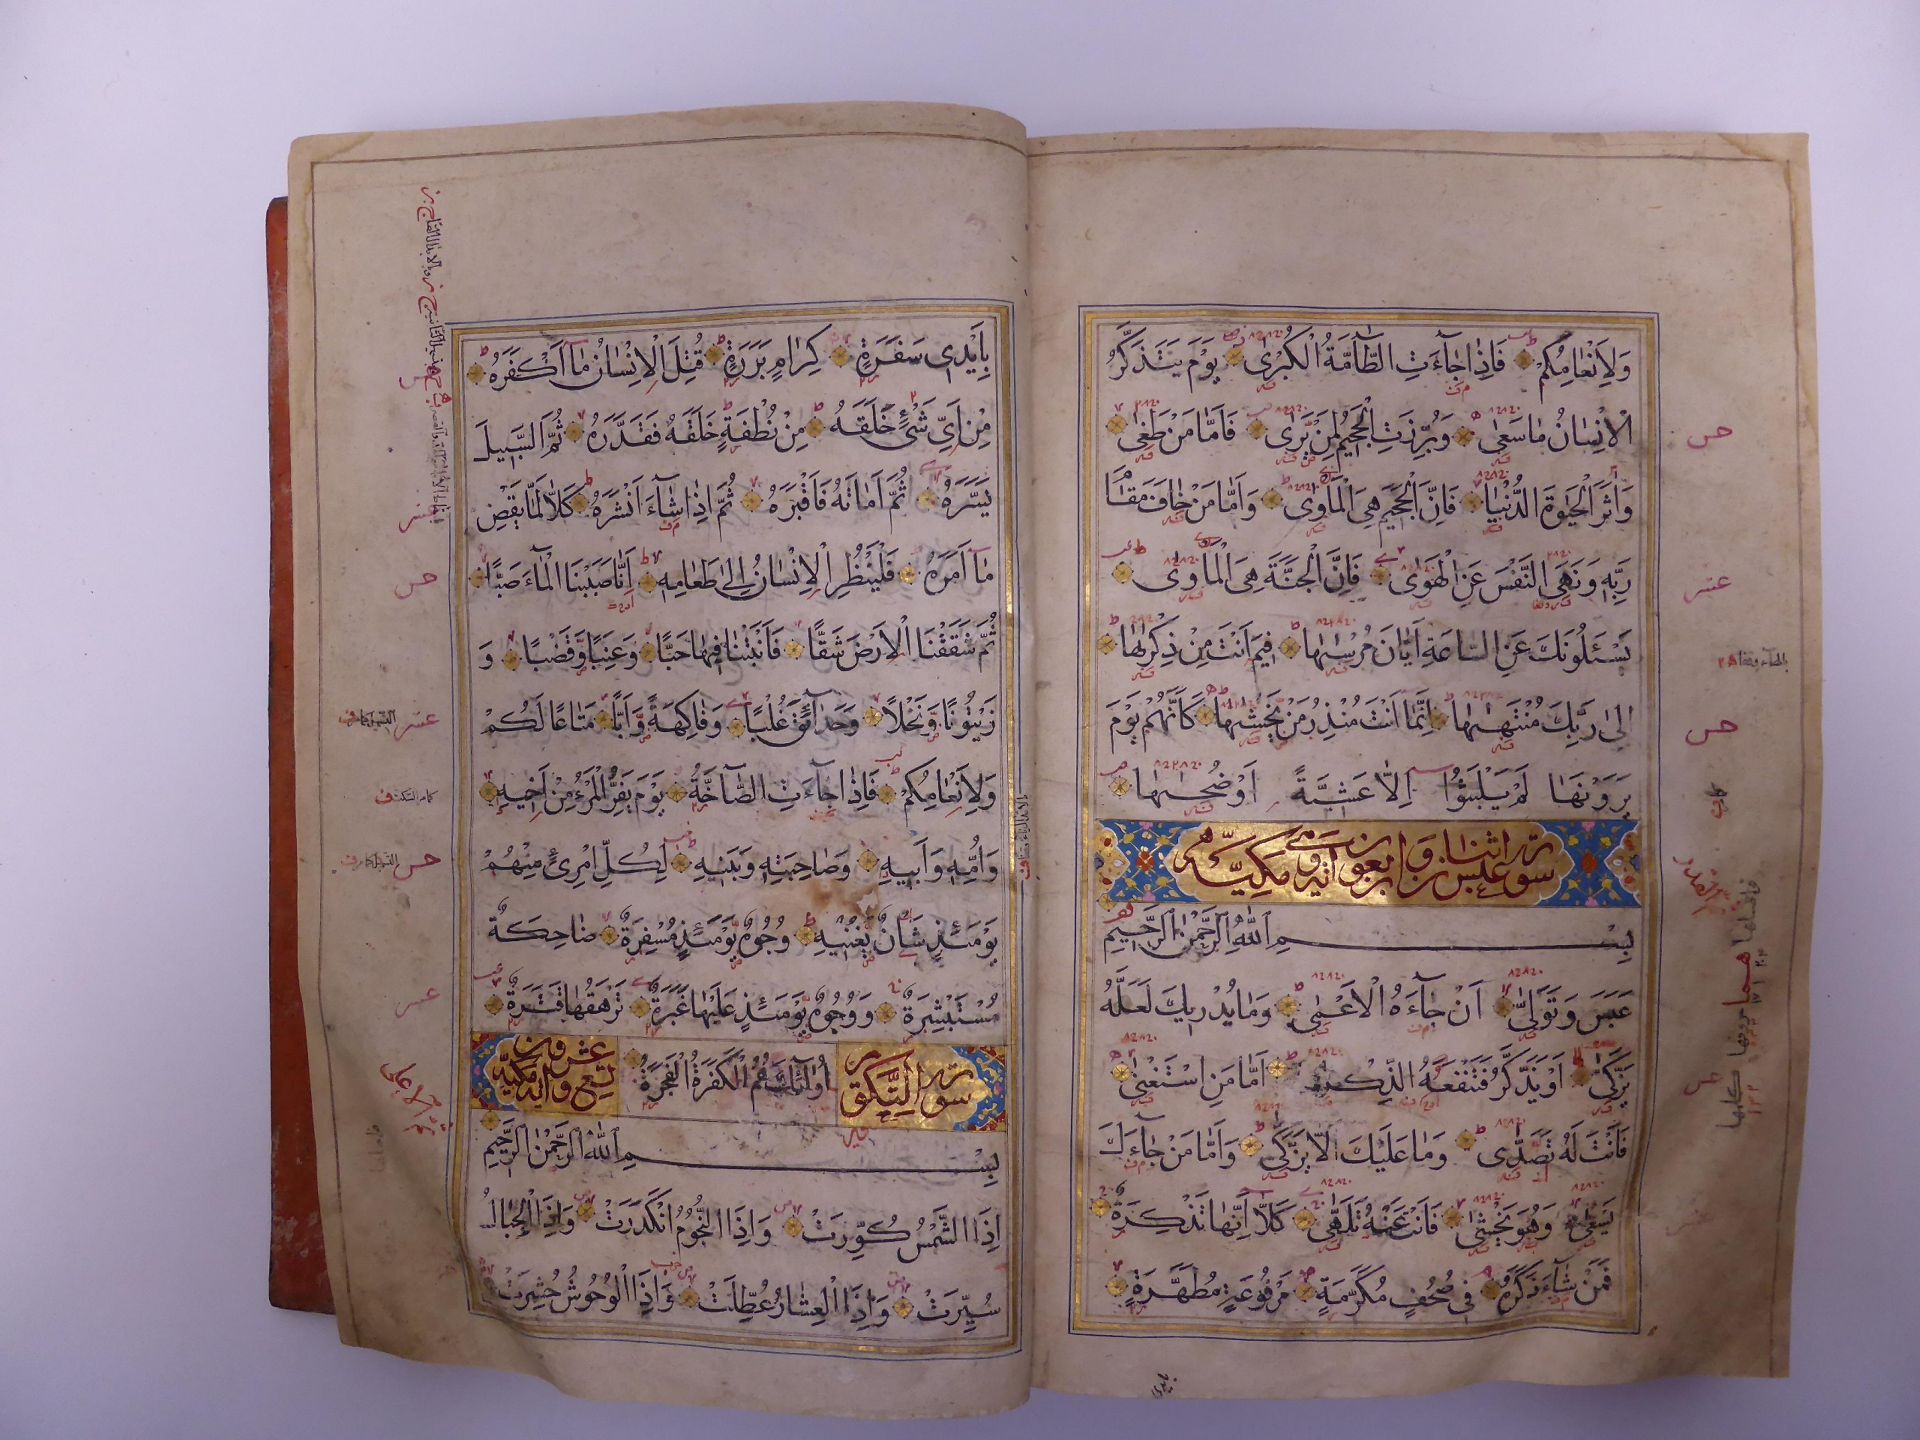 وَلِاَنْعَامِكُمْ فَاِذَا جَآءَتِ الطَّآمَّةُ الْكُبْرٰى يَوْمَ يَتَذَكَّرُ
الْاِنْسَانُ مَا سَعٰى وَبُرِّزَتِ الْجَحِيمُ لِمَنْ يَرٰى فَاَمَّا مَنْ طَغٰى
وَاٰثَرَ الْحَيٰوةَ الدُّنْيَا فَاِنَّ الْجَحِيمَ هِىَ الْمَاْوٰى وَاَمَّا مَنْ خَافَ مَقَامَ
رَبِّهٖ وَنَهَى النَّفْسَ عَنِ الْهَوٰى فَاِنَّ الْجَنَّةَ هِىَ الْمَاْوٰى
يَسْـَٔلُونَكَ عَنِ السَّاعَةِ اَيَّانَ مُرْسٰيهَا فِيمَ اَنْتَ مِنْ ذِكْرٰىهَا
اِلٰى رَبِّكَ مُنْتَهٰيهَا اِنَّمَا اَنْتَ مُنْذِرُ مَنْ يَخْشٰيهَا كَاَنَّهُمْ يَوْمَ
يَرَوْنَهَا لَمْ يَلْبَثُوا اِلَّا عَشِيَّةً اَوْ ضُحٰيهَا
سورة عبس اثنان واربعون آية وهي مكية
بِسْمِ اللّٰهِ الرَّحْمٰنِ الرَّحِيمِ
عَبَسَ وَتَوَلّٰى اَنْ جَآءَهُ الْاَعْمٰى وَمَا يُدْرِيكَ لَعَلَّهُ
يَزَّكّٰى اَوْ يَذَّكَّرُ فَتَنْفَعَهُ الذِّكْرٰى اَمَّا مَنِ اسْتَغْنٰى
فَاَنْتَ لَهُ تَصَدّٰى وَمَا عَلَيْكَ اَلَّا يَزَّكّٰى وَاَمَّا مَنْ جَآءَكَ
يَسْعٰى وَهُوَ يَخْشٰى فَاَنْتَ عَنْهُ تَلَهّٰى كَلَّا اِنَّهَا تَذْكِرَةٌ
فَمَنْ شَآءَ ذَكَرَهُ فِى صُحُفٍ مُكَرَّمَةٍ مَرْفُوعَةٍ مُطَهَّرَةٍ
بِاَيْدِى سَفَرَةٍ كِرَامٍ بَرَرَةٍ قُتِلَ الْاِنْسَانُ مَآ اَكْفَرَهُ
مِنْ اَىِّ شَىْءٍ خَلَقَهُ مِنْ نُطْفَةٍ خَلَقَهُ فَقَدَّرَهُ ثُمَّ السَّبِيلَ
يَسَّرَهُ ثُمَّ اَمَاتَهُ فَاَقْبَرَهُ ثُمَّ اِذَا شَآءَ اَنْشَرَهُ كَلَّا لَمَّا يَقْضِ
مَآ اَمَرَهُ فَلْيَنْظُرِ الْاِنْسَانُ اِلٰى طَعَامِهٖ اَنَّا صَبَبْنَا الْمَآءَ صَبًّا
ثُمَّ شَقَقْنَا الْاَرْضَ شَقًّا فَاَنْبَتْنَا فِيهَا حَبًّا وَعِنَبًا وَقَضْبًا وَ
زَيْتُونًا وَنَخْلًا وَحَدَآئِقَ غُلْبًا وَفَاكِهَةً وَاَبًّا مَتَاعًا لَكُمْ
وَلِاَنْعَامِكُمْ فَاِذَا جَآءَتِ الصَّآخَّةُ يَوْمَ يَفِرُّ الْمَرْءُ مِنْ اَخِيهِ
وَاُمِّهٖ وَاَبِيهِ وَصَاحِبَتِهٖ وَبَنِيهِ لِكُلِّ امْرِئٍ مِنْهُمْ
يَوْمَئِذٍ شَاْنٌ يُغْنِيهِ وُجُوهٌ يَوْمَئِذٍ مُسْفِرَةٌ ضَاحِكَةٌ
مُسْتَبْشِرَةٌ وَوُجُوهٌ يَوْمَئِذٍ عَلَيْهَا غَبَرَةٌ تَرْهَقُهَا قَتَرَةٌ
اُولٰٓئِكَ هُمُ الْكَفَرَةُ الْفَجَرَةُ
سورة التكوير
عشرون تسع وآية مكية
بِسْمِ اللّٰهِ الرَّحْمٰنِ الرَّحِيمِ
اِذَا الشَّمْسُ كُوِّرَتْ وَاِذَا النُّجُومُ انْكَدَرَتْ وَاِذَا الْجِبَالُ
سُيِّرَتْ وَاِذَا الْعِشَارُ عُطِّلَتْ وَاِذَا الْوُحُوشُ حُشِرَتْ
عشر
عشر
عشر
عشر